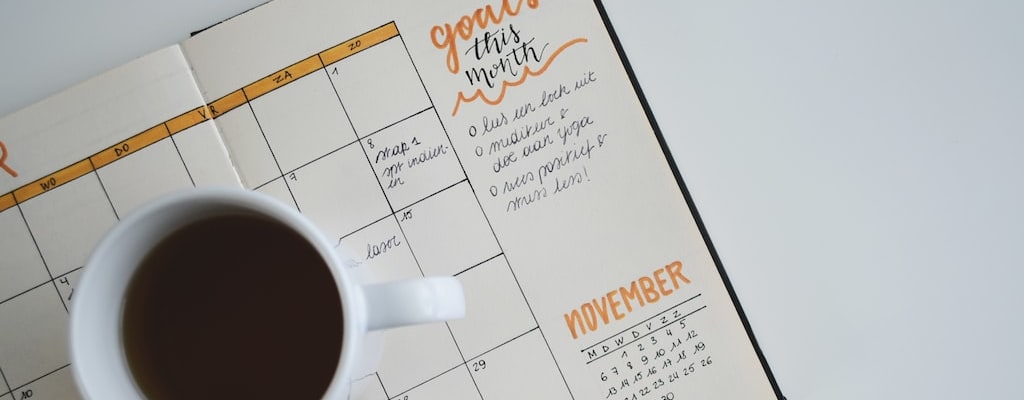 R
WO
DO
VR
ZA
ZO
1
7
8
stap 1
spr indien-
en
4
15
laser
10
29
goals
this
month
o lees een boek uit
o mediteer &
doe aan yoga
o wees positief &
stress less!
NOVEMBER
M D W D V Z Z
1 2 3 4 5
6 7 8 9 10 11 12
13 14 15 16 17 18 19
21 22 23 24 25 26
30